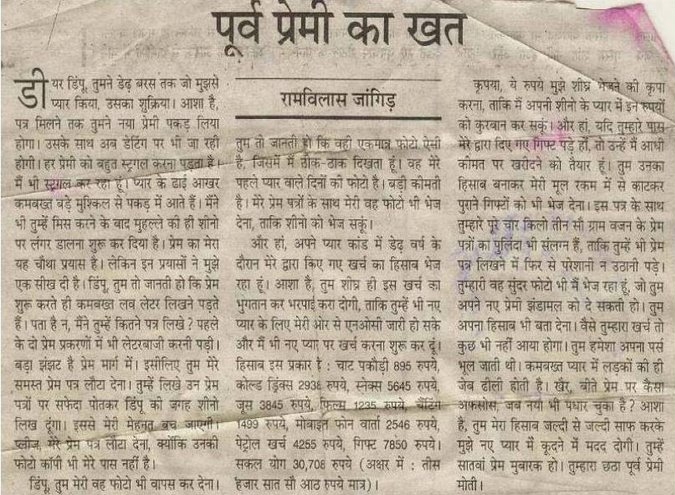 पूर्व प्रेमी का खत
रामविलास जांगिड़
डीयर डिंपू, तुमने डेढ़ बरस तक जो मुझसे
प्यार किया, उसका शुक्रिया। आशा है,
पत्र मिलने तक तुमने नया प्रेमी पकड़ लिया
होगा। उसके साथ अब डेटिंग पर भी जा रही
होगी। हर प्रेमी को बहुत स्ट्रगल करना पड़ता है।
मैं भी स्ट्रगल कर रहा हूं। प्यार के ढाई आखर
कमबख्त बड़े मुश्किल से पकड़ में आते हैं। मैंने
भी तुम्हें मिस करने के बाद मुहल्ले की ही शीनो
पर लंगर डालना शुरू कर दिया है। प्रेम का मेरा
यह चौथा प्रयास है। लेकिन इन प्रयासों ने मुझे
एक सीख दी है। डिंपू, तुम तो जानती हो कि प्रेम
शुरू करते ही कमबख्त लव लेटर लिखने पड़ते
हैं। पता है न, मैंने तुम्हें कितने पत्र लिखे? पहले
के दो प्रेम प्रकरणों में भी लेटरबाजी करनी पड़ी।
बड़ा झंझट है प्रेम मार्ग में। इसीलिए तुम मेरे
समस्त प्रेम पत्र लौटा देना। तुम्हें लिखे उन प्रेम
पत्रों पर सफेदा पोतकर डिंपू की जगह शीनो
लिख दूंगा। इससे मेरी मेहनत बच जाएगी।
प्लीज, मेरे प्रेम पत्र लौटा देना, क्योंकि उनकी
फोटो कॉपी भी मेरे पास नहीं है।
डिंपू, तुम मेरी वह फोटो भी वापस कर देना।
तुम तो जानती हो कि वही एकमात्र फोटो ऐसी
है, जिसमें मैं ठीक-ठाक दिखता हूं। वह मेरे
पहले प्यार वाले दिनों की फोटो है। बड़ी कीमती
है। मेरे प्रेम पत्रों के साथ मेरी वह फोटो भी भेज
देना, ताकि शीनो को भेज सकूं।
और हां, अपने प्यार कांड में डेढ़ वर्ष के
दौरान मेरे द्वारा किए गए खर्च का हिसाब भेज
रहा हूं। आशा है, तुम शीघ्र ही इस खर्च का
भुगतान कर भरपाई करा दोगी, ताकि तुम्हें भी नए
प्यार के लिए मेरी ओर से एनओसी जारी हो सके
और मैं भी नए प्यार पर खर्च करना शुरू कर दूं।
हिसाब इस प्रकार है : चाट पकौड़ी 895 रुपये,
कोल्ड ड्रिंक्स 2938 रुपये, स्नेक्स 5645 रुपये,
जूस 3845 रुपये, फिल्म 1235 रुपये, चैटिंग
1499 रुपये, मोबाइल फोन वार्ता 2546 रुपये,
पेट्रोल खर्च 4255 रुपये, गिफ्ट 7850 रुपये।
सकल योग 30,708 रुपये (अक्षर में : तीस
हजार सात सौ आठ रुपये मात्र)।
कृपया, ये रुपये मुझे शीघ्र भेजने की कृपा
करना, ताकि मैं अपनी शीनो के प्यार में इन रुपयों
को कुरबान कर सकूं। और हां, यदि तुम्हारे पास
मेरे द्वारा दिए गए गिफ्ट पड़े हों, तो उन्हें मैं आधी
कीमत पर खरीदने को तैयार हूं। तुम उनका
हिसाब बनाकर मेरी मूल रकम में से काटकर
पुराने गिफ्टों को भी भेज देना। इस पत्र के साथ
तुम्हारे पूरे चार किलो तीन सौ ग्राम वजन के प्रेम
पत्रों का पुलिंदा भी संलग्न हैं, ताकि तुम्हें भी प्रेम
पत्र लिखने में फिर से परेशानी न उठानी पड़े।
तुम्हारी वह सुंदर फोटो भी मैं भेज रहा हूं, जो तुम
अपने नए प्रेमी झंडामल को दे सकती हो। तुम
अपना हिसाब भी बता देना। वैसे तुम्हारा खर्च तो
कुछ भी नहीं आया होगा। तुम हमेशा अपना पर्स
भूल जाती थी। कमबख्त प्यार में लड़कों की ही
जेब ढीली होती है। खैर, बीते प्रेम पर कैसा
अफसोस, जब नया भी पधार चुका है? आशा
है, तुम मेरा हिसाब जल्दी से जल्दी साफ करके
मुझे नए प्यार में कूदने में मदद दोगी। तुम्हें
सातवां प्रेम मुबारक हो। तुम्हारा छठा पूर्व प्रेमी
मोती।